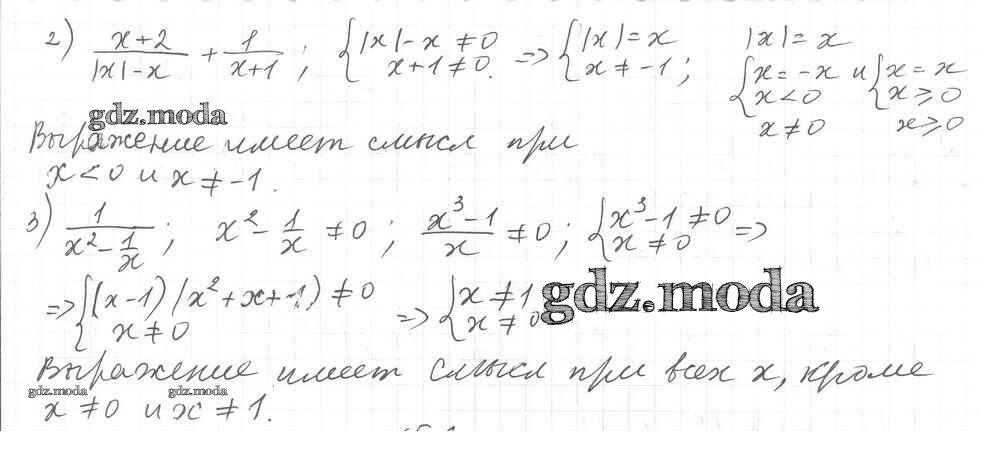 2) (x+2)/(|x|-x) + 1/(x+1) ; { |x|-x ≠ 0 x+1 ≠ 0. => { |x| = x x ≠ -1 ; |x| = x { x = -x x < 0 x ≠ 0 и { x = x x ⩾ 0 x ⩾ 0
gdz.moda
Выражение имеет смысл при
x < 0 и x ≠ -1.
3) 1/(x² - 1/x) ; x² - 1/x ≠ 0 ; (x³-1)/x ≠ 0 ; { x³-1 ≠ 0 x ≠ 0 =>
=> { (x-1)(x²+x+1) ≠ 0 x ≠ 0 => { x ≠ 1 x ≠ 0 gdz.moda
Выражение имеет смысл при всех x, кроме
gdz.moda gdz.moda
x ≠ 0 и x ≠ 1.